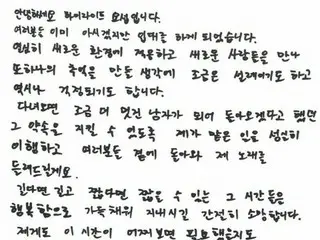 안녕하세요 하이라이트 요섭입니다.
여러분들 이미 아시겠지만 입대를 하게 되었습니다.
열심히 새로운 환경에 적응하고 새로운 사람들을 만나
또하나의 추억을 만들 생각에 조금은 설레이기도 하고
역시나 걱정되기도 합니다.
다녀오면 조금 더 멋진 남자가 되어 돌아오겠다고 했던
그 약속을 지킬 수 있도록 제가 맡은 일을 성실히
이행하고 여러분들 곁에 돌아와 제 노래를
들려드릴게요.
길다면 길고 짧다면 짧을 수 있는 그 시간들은
행복함으로 가득채워 지내시길 간절히 소망합니다.
제게도 이 시간이 어쩌보면 필요했을지도